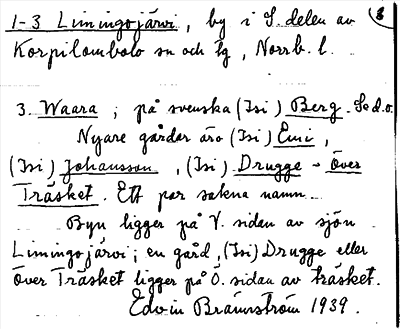 1-3 Limingojärvi, by i S. delen av 8
Korpilombolo sn och tg, Norrb. l.
3. Waara; på svenska (Isi) Berg. Se d.o.
Nyare gårdar äro (Isi) Emi,
(Isi) Johansson, (Isi) Drugge - Över
Träsket. Ett par sakna namn.
Byn ligger på V. sidan av sjön
Limingojärvi; en gård, (Isi) Drugge eller
Över Träsket ligger på Ö. sidan av träsket.
Edvin Brännström 1939.